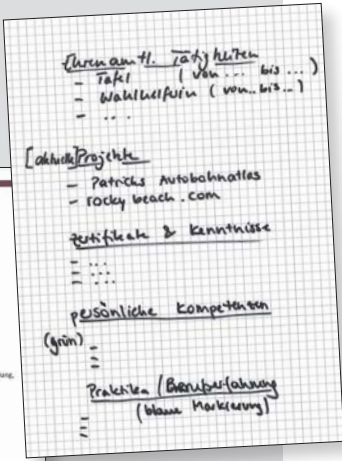 Ehrenamtl. Tätigkeiten
- Tafel (von ... bis ...)
- Wahlhelferin (von.. bis ..)
- ...
[aktuelle] Projekte
- Patricks Autobahnatlas
- rocky beach . com
Zertifikate & Kenntnisse
- ...
- ...
- ...
persönliche Kompetenzen
(grün) -
-
-
Praktika / Berufserfahrung
(blaue Markierung)
-
-
-